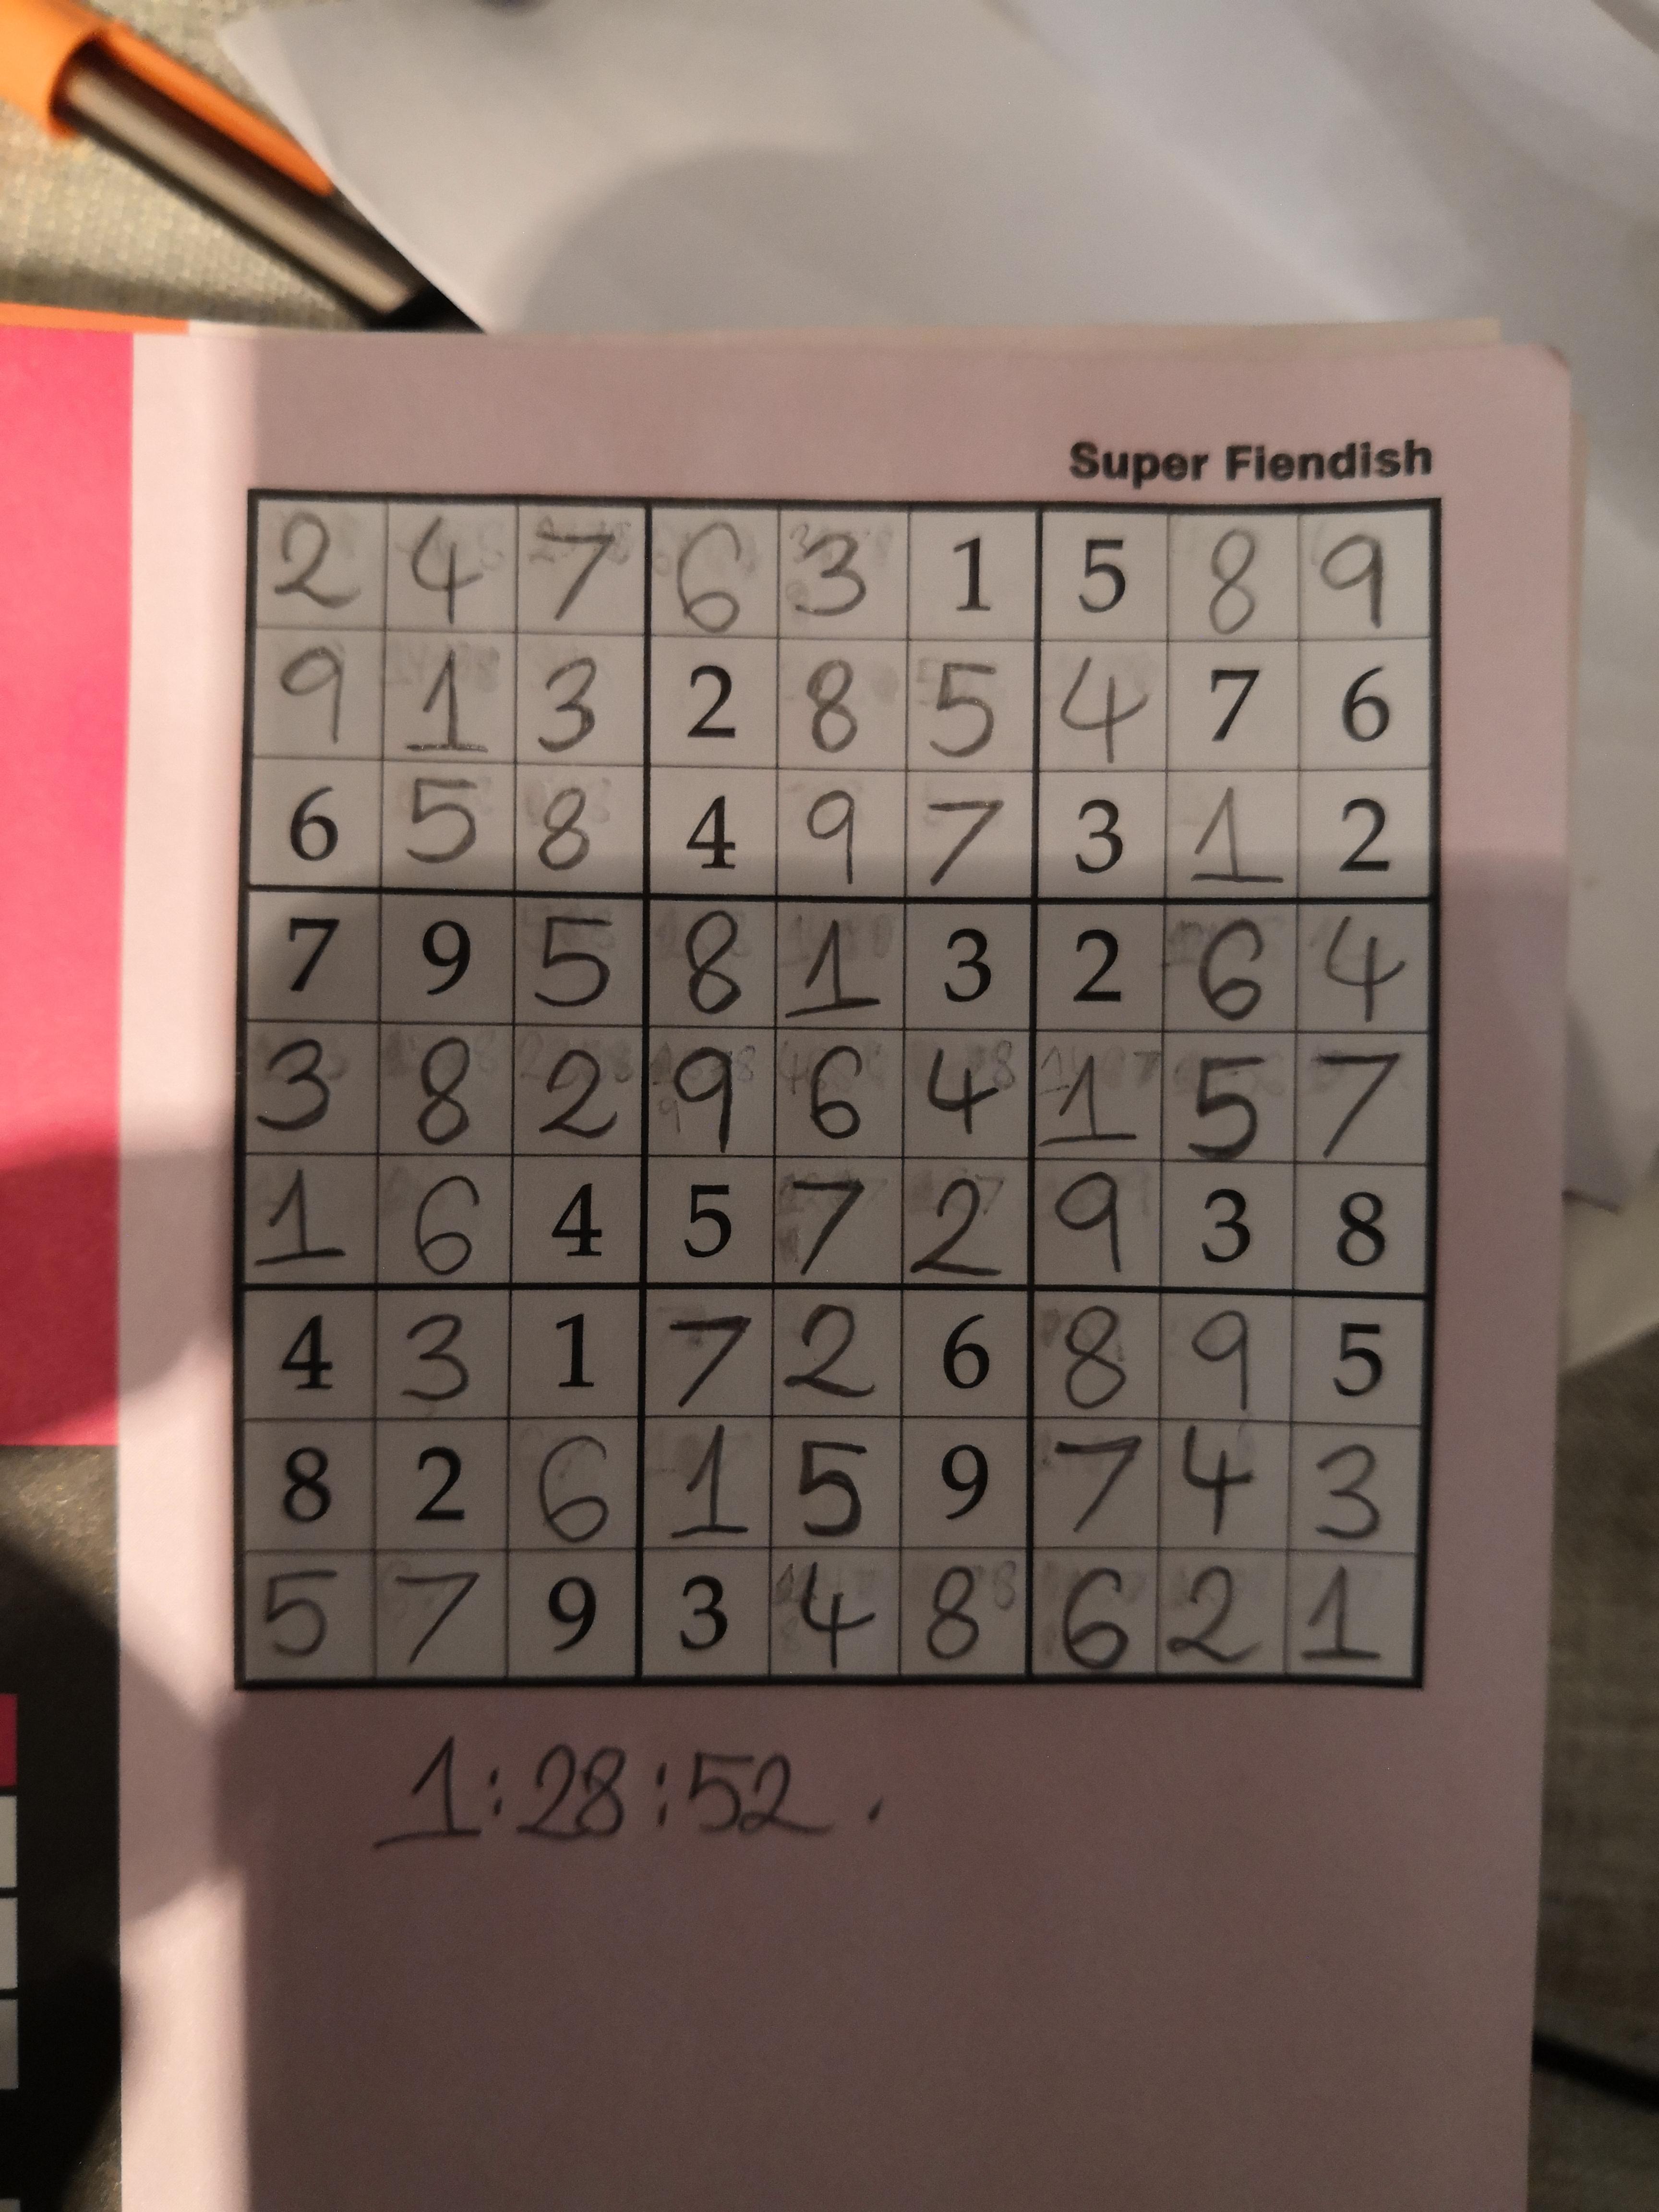 Super Fiendish
2 4 7 6 3 1 5 8 9
9 1 3 2 8 5 4 7 6
6 5 8 4 9 7 3 1 2
7 9 5 8 1 3 2 6 4
3 8 2 9 6 4 1 5 7
1 6 4 5 7 2 9 3 8
4 3 1 7 2 6 8 9 5
8 2 6 1 5 9 7 4 3
5 7 9 3 4 8 6 2 1
1:28:52.